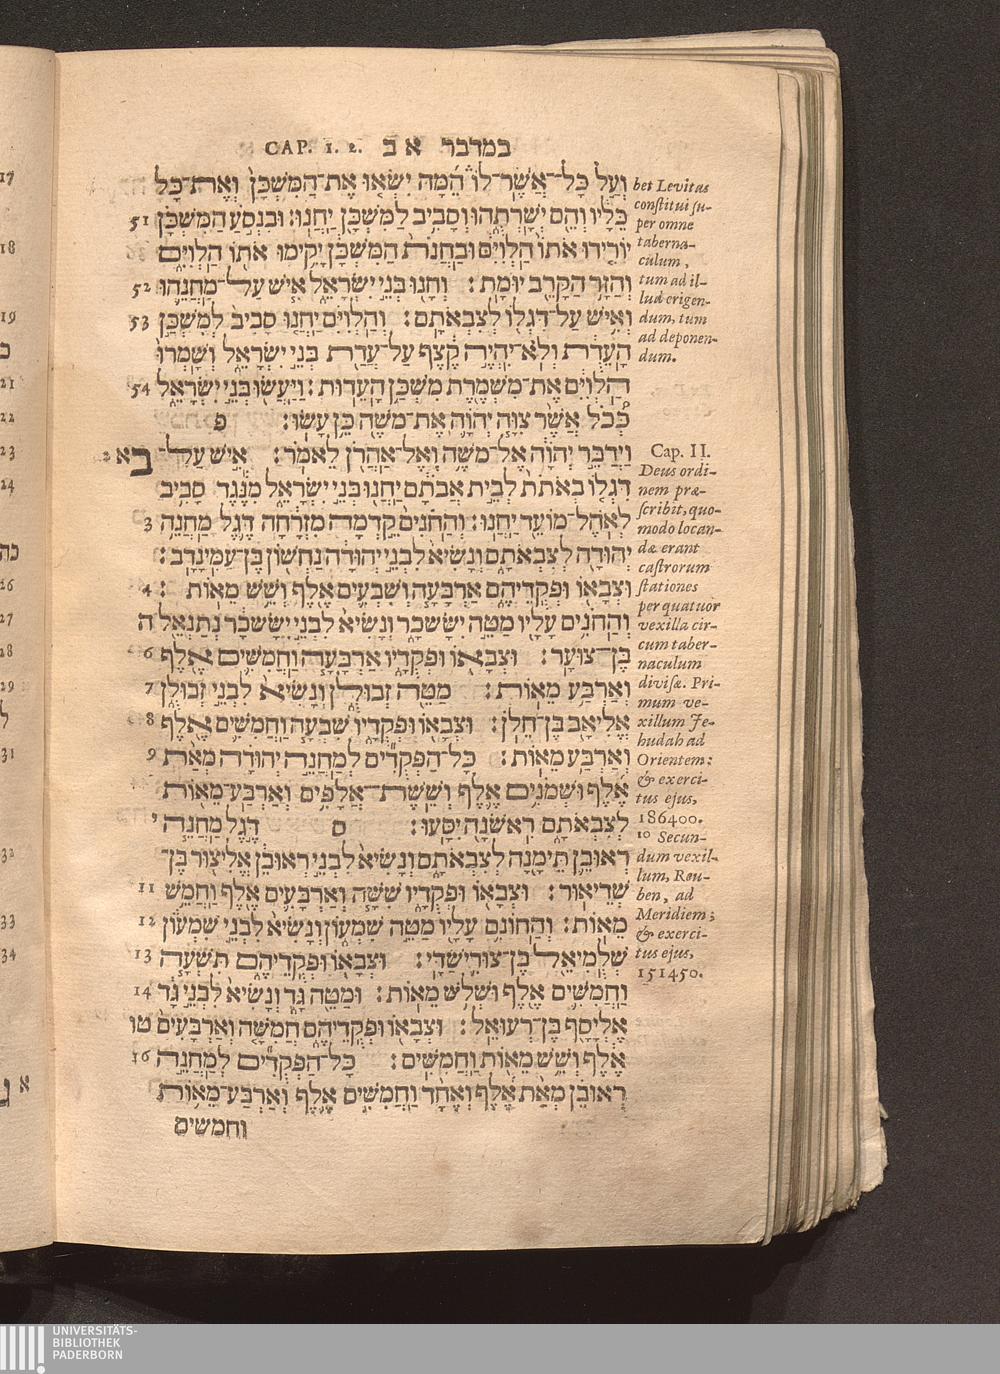 CAP. 1. 2. במדבר א ב
וְעַל כָּל־אֲשֶׁר־לוֹ הֵמָּה יִשְׂאוּ אֶת־הַמִּשְׁכָּן וְאֶת־כָּל
כֵּלָיו וְהֵם יְשָׁרְתֻהוּ וְסָבִיב לַמִּשְׁכָּן יַחֲנוּ׃ וּבִנְסֹעַ הַמִּשְׁכָּן 51
יוֹרִידוּ אֹתוֹ הַלְוִיִּם וּבַחֲנֹת הַמִּשְׁכָּן יָקִימוּ אֹתוֹ הַלְוִיִּם
וְהַזָּר הַקָּרֵב יוּמָת׃ וְחָנוּ בְּנֵי יִשְׂרָאֵל אִישׁ עַל־מַחֲנֵהוּ 52
וְאִישׁ עַל־דִּגְלוֹ לְצִבְאֹתָם׃ וְהַלְוִיִּם יַחֲנוּ סָבִיב לְמִשְׁכַּן 53
הָעֵדֻת וְלֹא־יִהְיֶה קֶצֶף עַל־עֲדַת בְּנֵי יִשְׂרָאֵל וְשָׁמְרוּ
הַלְוִיִּם אֶת־מִשְׁמֶרֶת מִשְׁכַּן הָעֵדוּת׃ וַיַּעֲשׂוּ בְּנֵי יִשְׂרָאֵל 54
כְּכֹל אֲשֶׁר צִוָּה יְהוָֹה אֶת־מֹשֶׁה כֵּן עָשׂוּ׃ פ
וַיְדַבֵּר יְהוָֹה אֶל־מֹשֶׁה וְאֶל־אַהֲרֹן לֵאמֹר׃ אִישׁ עַל־ ב א 2
דִּגְלוֹ בְאֹתֹת לְבֵית אֲבֹתָם יַחֲנוּ בְּנֵי יִשְׂרָאֵל מִנֶּגֶד סָבִיב
לְאֹהֶל־מוֹעֵד יַחֲנוּ׃ וְהַחֹנִים קֵדְמָה מִזְרָחָה דֶּגֶל מַחֲנֵה 3
יְהוּדָה לְצִבְאֹתָם וְנָשִׂיא לִבְנֵי יְהוּדָה נַחְשׁוֹן בֶּן־עַמִּינָדָב׃
וּצְבָאוֹ וּפְקֻדֵיהֶם אַרְבָּעָה וְשִׁבְעִים אֶלֶף וְשֵׁשׁ מֵאוֹת׃ 4
וְהַחֹנִים עָלָיו מַטֵּה יִשָּׂשכָר וְנָשִׂיא לִבְנֵי יִשָּׂשכָר נְתַנְאֵל ה
בֶּן־צוּעָר׃ וּצְבָאוֹ וּפְקֻדָיו אַרְבָּעָה וַחֲמִשִּׁים אֶלֶף 6
וְאַרְבַּע מֵאוֹת׃ מַטֵּה זְבוּלֻן וְנָשִׂיא לִבְנֵי זְבוּלֻן 7
אֱלִיאָב בֶּן־חֵלֹן׃ וּצְבָאוֹ וּפְקֻדָיו שִׁבְעָה וַחֲמִשִּׁים אֶלֶף 8
וְאַרְבַּע מֵאוֹת׃ כָּל־הַפְּקֻדִים לְמַחֲנֵה יְהוּדָה מְאַת 9
אֶלֶף וּשְׁמֹנִים אֶלֶף וְשֵׁשֶׁת־אֲלָפִים וְאַרְבַּע־מֵאוֹת
לְצִבְאֹתָם רִאשֹׁנָה יִסָּעוּ׃ ס דֶּגֶל מַחֲנֵה י
רְאוּבֵן תֵּימָנָה לְצִבְאֹתָם וְנָשִׂיא לִבְנֵי רְאוּבֵן אֱלִיצוּר בֶּן־
שְׁדֵיאוּר׃ וּצְבָאוֹ וּפְקֻדָיו שִׁשָּׁה וְאַרְבָּעִים אֶלֶף וַחֲמֵשׁ 11
מֵאוֹת׃ וְהַחוֹנִם עָלָיו מַטֵּה שִׁמְעוֹן וְנָשִׂיא לִבְנֵי שִׁמְעוֹן 12
שְׁלֻמִיאֵל בֶּן־צוּרִישַׁדָּי׃ וּצְבָאוֹ וּפְקֻדֵיהֶם תִּשְׁעָה 13
וַחֲמִשִּׁים אֶלֶף וּשְׁלֹשׁ מֵאוֹת׃ וּמַטֵּה גָּד וְנָשִׂיא לִבְנֵי גָד 14
אֶלְיָסָף בֶּן־רְעוּאֵל׃ וּצְבָאוֹ וּפְקֻדֵיהֶם חֲמִשָּׁה וְאַרְבָּעִים טו
אֶלֶף וְשֵׁשׁ מֵאוֹת וַחֲמִשִּׁים׃ כָּל־הַפְּקֻדִים לְמַחֲנֵה 16
רְאוּבֵן מְאַת אֶלֶף וְאֶחָד וַחֲמִשִּׁים אֶלֶף וְאַרְבַּע־מֵאוֹת
וחמשים
bet Levitas
constitui su-
per omne
taberna-
culum,
tum ad il-
lud erigen-
dum, tum
ad deponen-
dum.
Cap. II.
Deus ordi-
nem præ-
scribit, quo-
modo locan-
dæ erant
castrorum
stationes
per quatuor
vexilla cir-
cum taber-
naculum
divisæ. Pri-
mum ve-
xillum Je-
hudah ad
Orientem:
& exerci-
tus ejus,
186400.
10 Secun-
dum vexil-
lum, Reu-
ben, ad
Meridiem;
& exerci-
tus ejus,
151450.
17
18
19
כ
21
22
23
24
כה
26
27
28
29
ל
31
32
33
34
א
UNIVERSITÄTS-
BIBLIOTHEK
PADERBORN